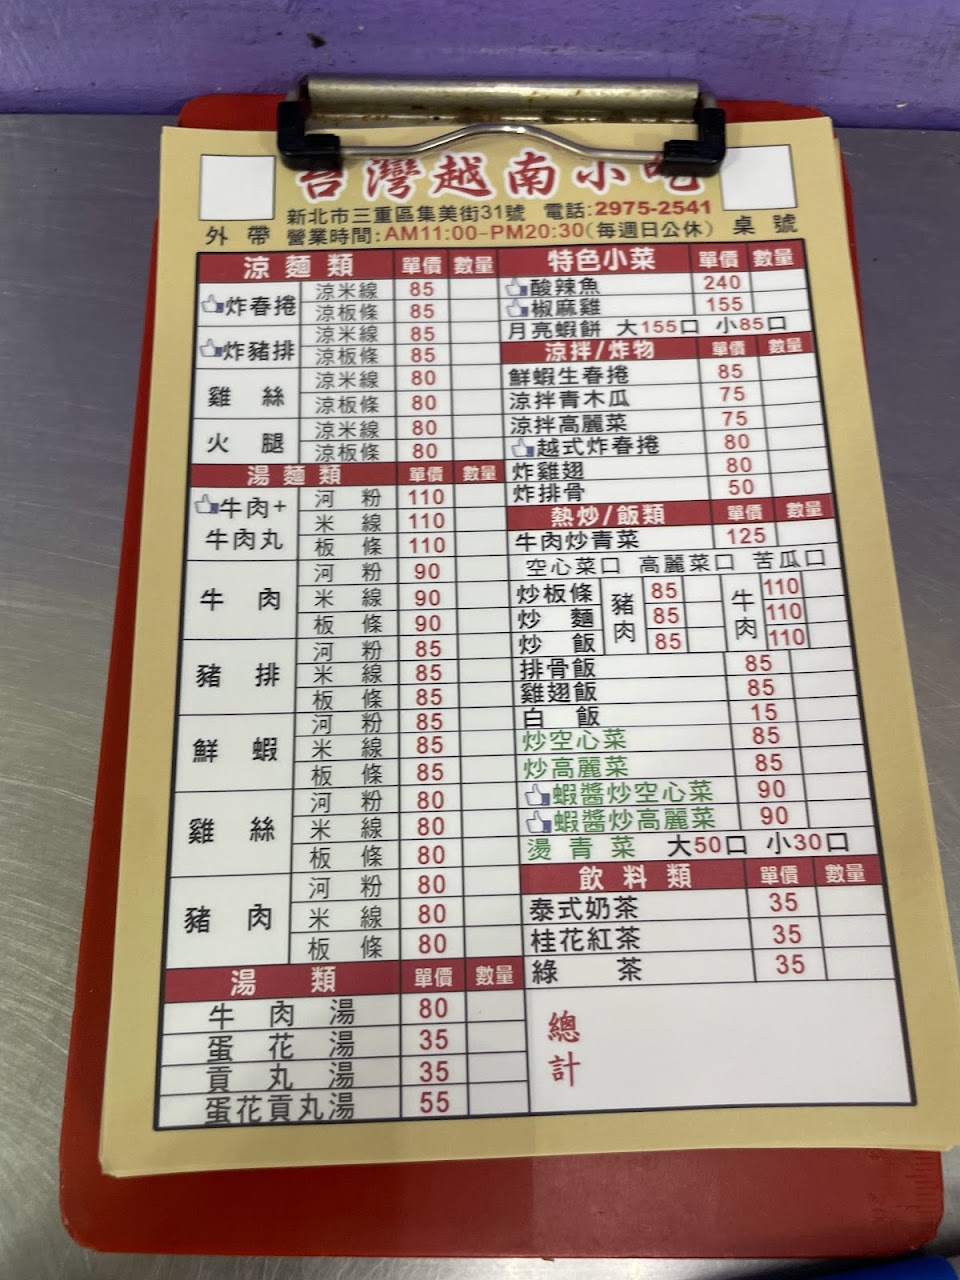 台灣越南小吃
新北市三重區集美街31號 電話:2975-2541
外帶 營業時間:AM11:00-PM20:30(每週日公休) 桌號
涼麵類 單價 數量
炸春捲 涼米線 85
涼板條 85
炸豬排 涼米線 85
涼板條 85
雞絲 涼米線 80
涼板條 80
火腿 涼米線 80
涼板條 80
湯麵類 單價 數量
牛肉+牛肉丸 河粉 110
米線 110
板條 110
牛肉 河粉 90
米線 90
板條 90
豬排 河粉 85
米線 85
板條 85
鮮蝦 河粉 85
米線 85
板條 85
雞絲 河粉 80
米線 80
板條 80
豬肉 河粉 80
米線 80
板條 80
湯類 單價 數量
牛肉湯 80
蛋花湯 35
貢丸湯 35
蛋花貢丸湯 55
特色小菜 單價 數量
酸辣魚 240
椒麻雞 155
月亮蝦餅 大155口 小85口
涼拌/炸物 單價 數量
鮮蝦生春捲 85
涼拌青木瓜 75
涼拌高麗菜 75
越式炸春捲 80
炸雞翅 80
炸排骨 50
熱炒/飯類 單價 數量
牛肉炒青菜 125
空心菜口 高麗菜口 苦瓜口
炒板條 豬肉 85 牛肉 110
炒麵 85 110
炒飯 85 110
排骨飯 85
雞翅飯 85
白飯 15
炒空心菜 85
炒高麗菜 85
蝦醬炒空心菜 90
蝦醬炒高麗菜 90
燙青菜 大50口 小30口
飲料類 單價 數量
泰式奶茶 35
桂花紅茶 35
綠茶 35
總計